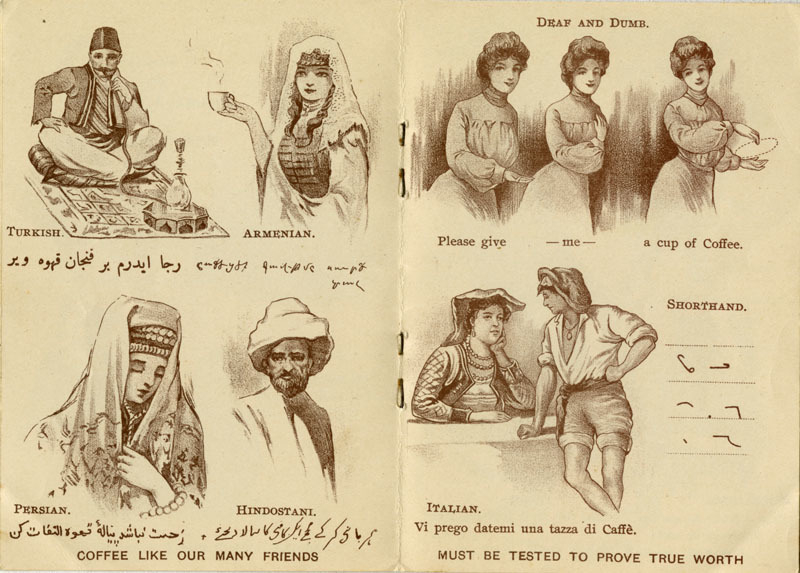 TURKISH.
ARMENIAN.
رجا ايدرم بر فنجان قهوه وير
PERSIAN.
HINDOSTANI.
زحمت نباشد پيالهٔ قهوه التفات كن
مہربانی کر کے مجھے ایک کافی کا پیالا دیجئے
COFFEE LIKE OUR MANY FRIENDS
DEAF AND DUMB.
Please give — me — a cup of Coffee.
SHORTHAND.
ITALIAN.
Vi prego datemi una tazza di Caffè.
MUST BE TESTED TO PROVE TRUE WORTH